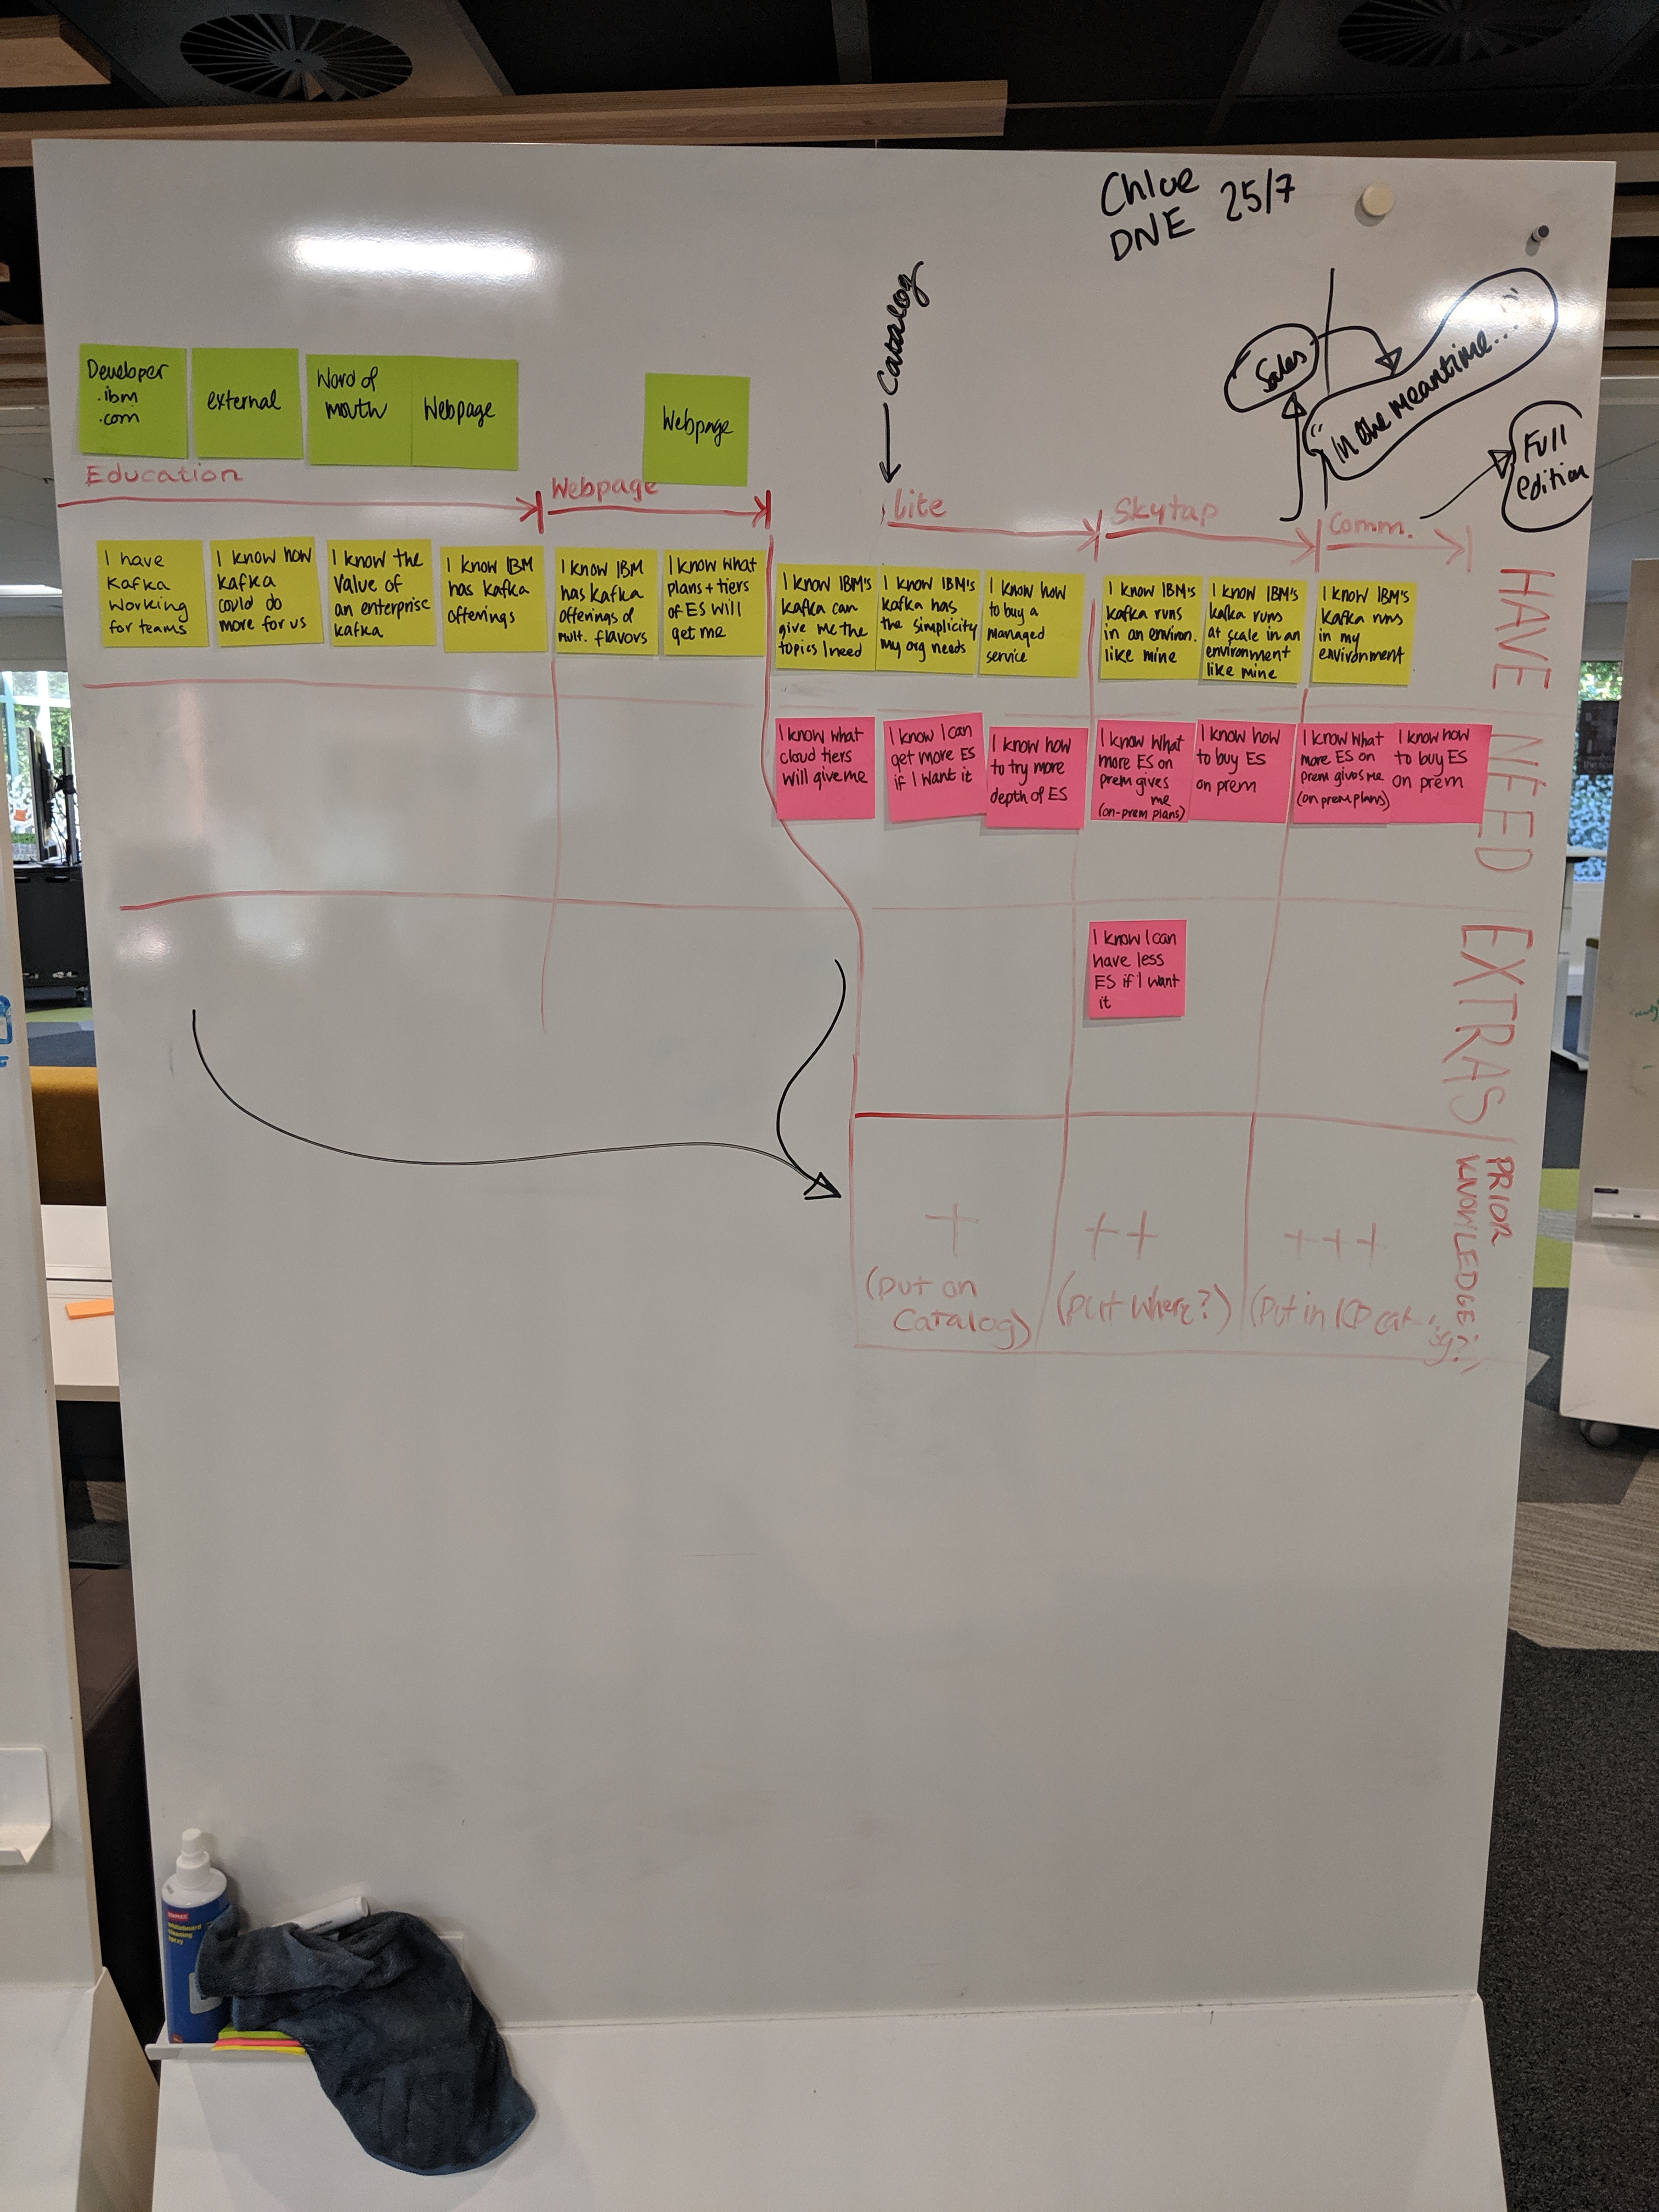 Chloe 25/7
DNE
Catalog
Sales
"In the meantime..."
Full
edition
Developer
.ibm
.com
external
Word of
mouth
Webpage
Webpage
Education
Webpage
Lite
Skytap
Comm.
I have
Kafka
working
for teams
I know how
kafka
could do
more for us
I know the
value of
an enterprise
kafka
I know IBM
has kafka
offerings
I know IBM
has kafka
offerings of
mult. flavors
I know what
plans + tiers
of ES will
get me
I know IBM's
kafka can
give me the
topics I need
I know IBM's
kafka has
the simplicity
my org needs
I know how
to buy a
managed
service
I know IBM's
kafka runs
in an environ.
like mine
I know IBM's
kafka runs
at scale in an
environment
like mine
I know IBM's
kafka runs
in my
environment
HAVE
I know what
cloud tiers
will give me
I know I can
get more ES
if I want it
I know how
to try more
depth of ES
I know what
more ES on
prem gives
me
(on-prem plans)
I know how
to buy ES
on prem
I know what
more ES on
prem gives me
(on prem plans)
I know how
to buy ES
on prem
NEED
I know I can
have less
ES if I want
it
EXTRAS
+
(put on
catalog)
++
(put where?)
+++
(put in ICP catalog?)
PRIOR
KNOWLEDGE